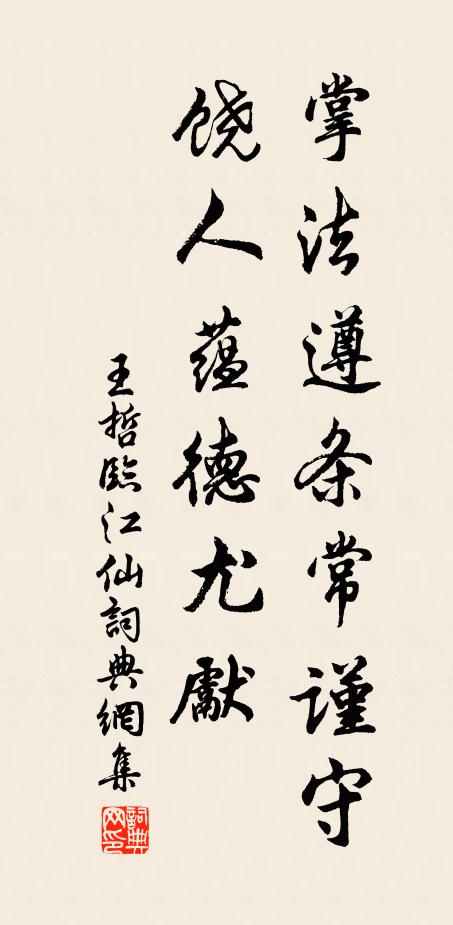 掌法遵条常谨守
饶人蕴德尤献
王哲臨江仙詞典網集
詞典网印